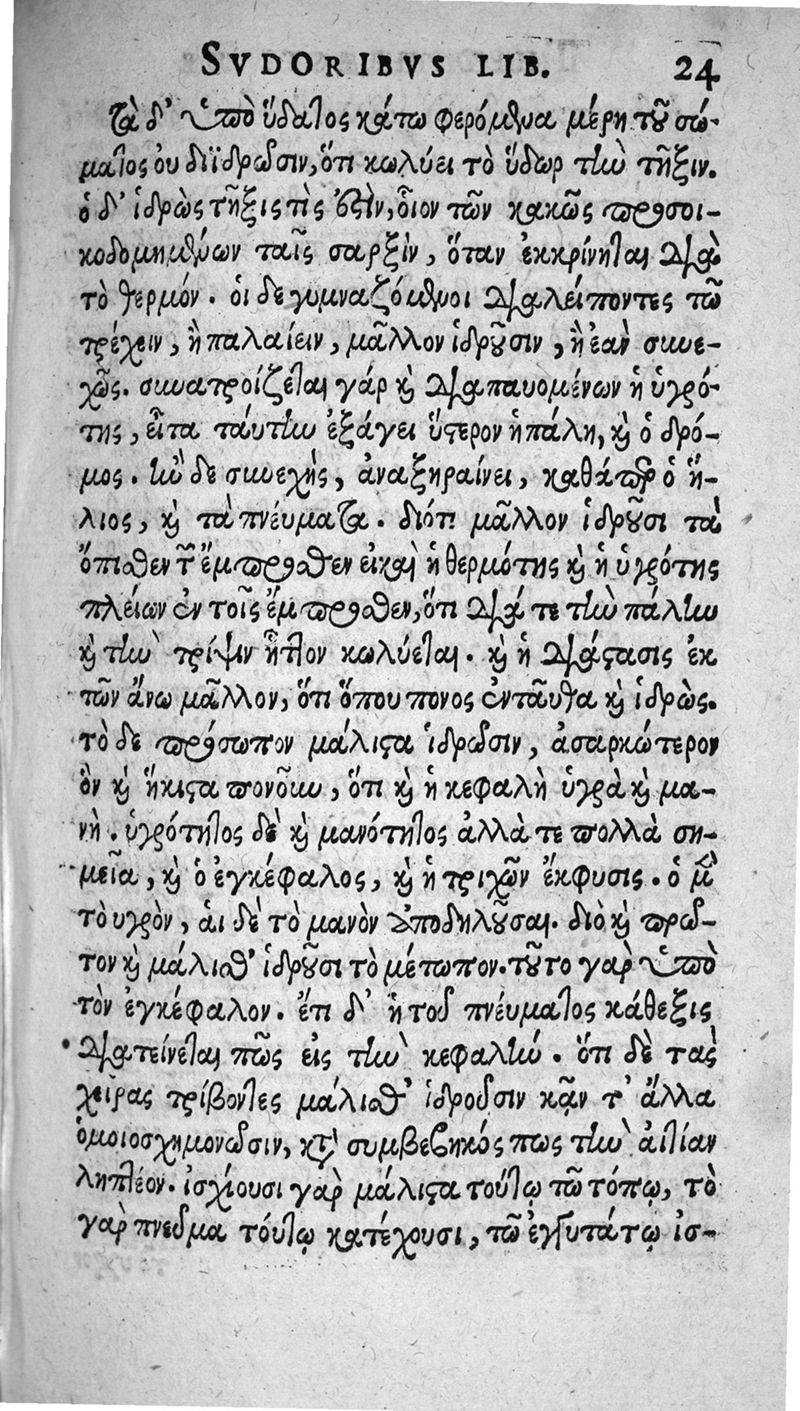 SVDORIBVS LIB. 24
τὰ δ' ὑπὸ ὕδατος κάτω φερόμενα μέρη τοῦ σώ-
ματος ου διϊδρῶσιν, ὅτι κωλύει τὸ ὕδωρ τὴν τῆξιν.
ὁ δ' ἱδρὼς τῆξις τὶς ἐστὶν, οἷον τῶν κακῶς προσοι-
κοδομημένων ταῖς σαρξὶν, ὅταν ἐκκρίνηται διὰ
τὸ θερμόν. οἱ δε γυμναζόμενοι διαλείποντες τῶ
τρέχειν, ἢ παλαίειν, μᾶλλον ἱδροῦσιν, ἢ ἐαν συνε-
χῶς. συνατροίζεται γάρ καὶ διαπαυομένων ἡ ὑγρό-
της, εἶτα ταύτην ἐξάγει ὕστερον ἡ πάλη, καὶ ὁ δρό-
μος. ἢν δε συνεχὴς, ἀναξηραίνει, καθάπερ ὁ ἥ-
λιος, καὶ τὰ πνέυματα. διότι μᾶλλον ἱδροῦσι τὰ
ὄπισθεν τῶν ἔμπροσθεν εἰ καὶ ἡ θερμότης καὶ ἡ ὑγρότης
πλείων ἐν τοῖς ἔμπροσθεν, ὅτι διά τε τὴν πάλην
καὶ τὴν τρίψιν ἧττον κωλύεται. καὶ ἡ διάστασις ἐκ
τῶν ἄνω μᾶλλον, ὅτι ὅπου πονος ἐνταῦθα καὶ ἱδρὼς.
τὸ δε πρόσωπον μάλιστα ἱδρῶσιν, ἀσαρκώτερον
ὂν καὶ ἥκιστα πονοῦν, ὅτι καὶ ἡ κεφαλὴ ὑγρὰ καὶ μα-
νὴ. ὑγρότητος δὲ καὶ μανότητος ἀλλά τε πολλὰ ση-
μεῖα, καὶ ὁ ἐγκέφαλος, καὶ ἡ τριχῶν ἔκφυσις. ὁ μὲν
τὸ υγρὸν, ἁι δὲ τὸ μανὸν ἀποδηλοῦσαι. διὸ καὶ πρῶ-
τον καὶ μάλισθ' ἱδροῦσι τὸ μέτωπον. τοῦτο γαρ ὑπὸ
τὸν ἐγκέφαλον. ἔτι δ' ἡ τοῦ πνέυματος κάθεξις
διατείνεται πῶς εἰς τὴν κεφαλήν. ὅτι δὲ τας
χεῖρας τρίβοντες μάλισθ' ἱδροῦσιν κᾄν τ' ἄλλα
ὁμοιοσχημονῶσιν, κτ συμβεβηκός πως τὴν ἀιτίαν
ληπτέον. ἰσχίουσι γαρ μάλιστα τούτῳ τῶ τόπῳ, τὸ
γαρ πνεῦμα τόυτῳ κατέχουσι, τῶ ἐγγυτάτῳ ἰσ-